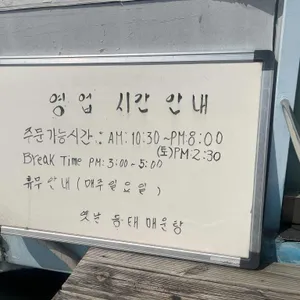 영업 시간 안내
주문가능시간: AM: 10:30~PM:8:00
(토)PM:2:30
Break Time PM: 3:00~5:00
휴무안내 (매주일요일)
옛날 동태매운탕